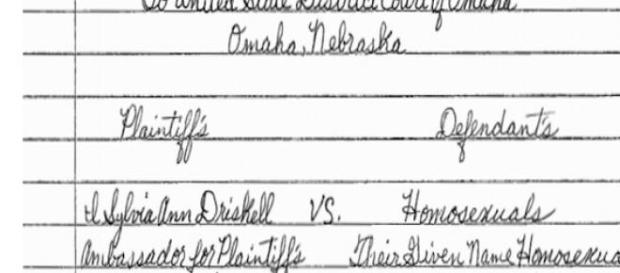 To United State District Court of Omaha
Omaha, Nebraska
Plaintiff's Defendant's
I Sylvia Ann Driskell VS. Homosexuals
Ambassador for Plaintiff's Their Given Name Homosexua